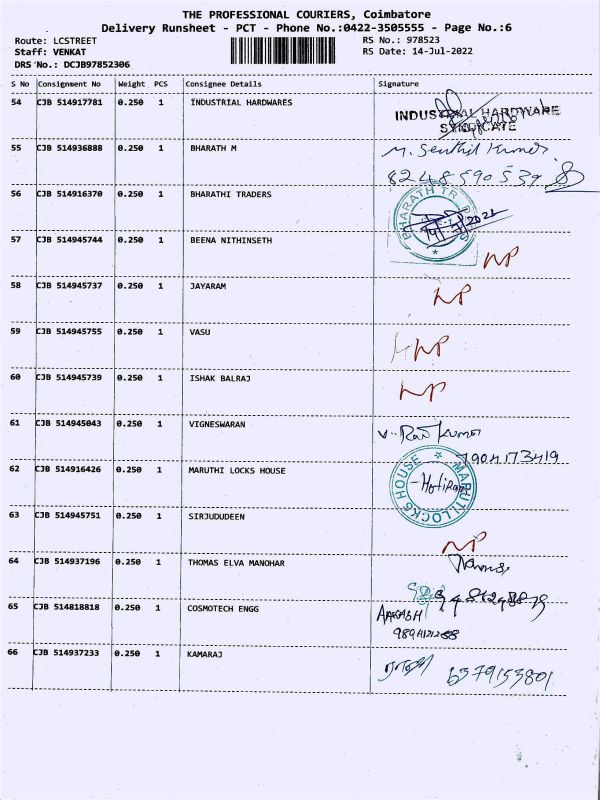 THE PROFESSIONAL COURIERS, Coimbatore
Delivery Runsheet - PCT - Phone No.:0422-3505555 - Page No.:6
Route: LCSTREET RS No.: 978523
Staff: VENKAT RS Date: 14-Jul-2022
DRS No.: DCJB97852306
S No Consignment No Weight PCS Consignee Details Signature
54 CJB 514917781 0.250 1 INDUSTRIAL HARDWARES INDUSTRIAL HARDWARE
SYNDICATE
55 CJB 514936888 0.250 1 BHARATH M M. Senthil Kumar
8248590539
56 CJB 514916370 0.250 1 BHARATHI TRADERS
57 CJB 514945744 0.250 1 BEENA NITHINSETH NP
58 CJB 514945737 0.250 1 JAYARAM NP
59 CJB 514945755 0.250 1 VASU NP
60 CJB 514945739 0.250 1 ISHAK BALRAJ NP
61 CJB 514945043 0.250 1 VIGNESWARAN V. Ravi Kumar
7904173419
62 CJB 514916426 0.250 1 MARUTHI LOCKS HOUSE MARUTI LOCKS HOUSE
63 CJB 514945751 0.250 1 SIRJUDUDEEN NP
64 CJB 514937196 0.250 1 THOMAS ELVA MANOHAR
65 CJB 514818818 0.250 1 COSMOTECH ENGG
66 CJB 514937233 0.250 1 KAMARAJ 6379153801